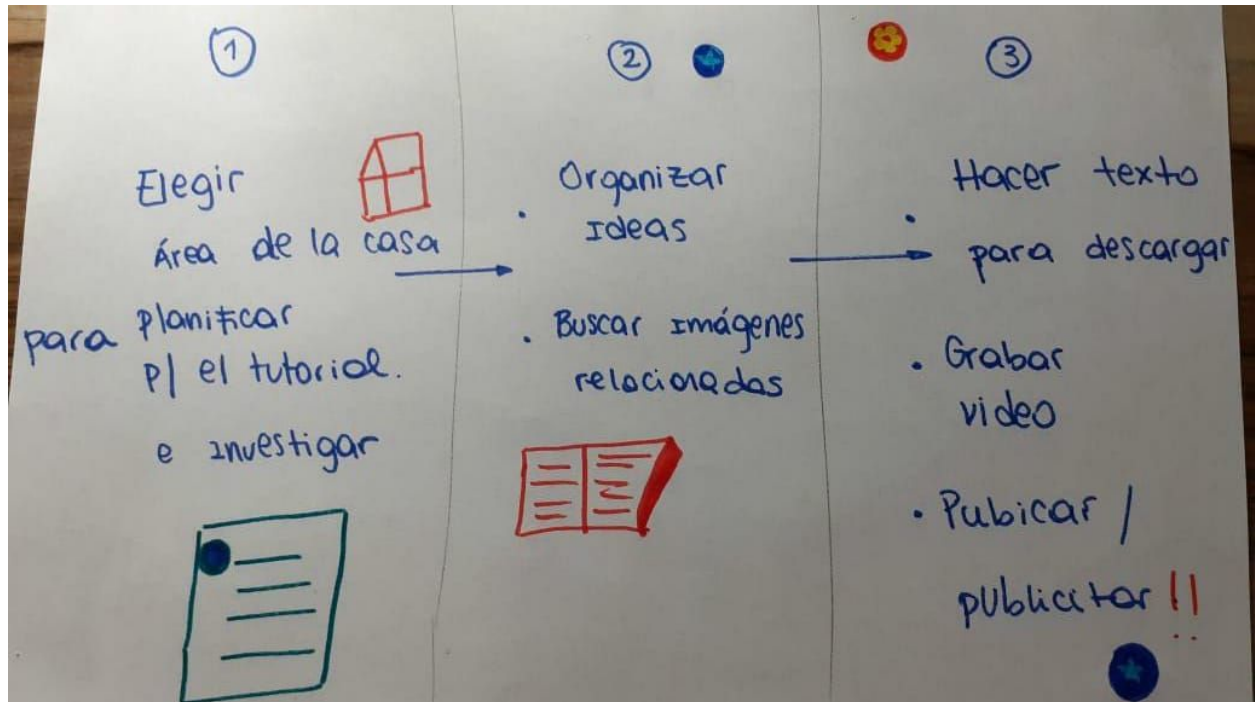 1
Elegir
Área de la casa
para planificar
p/ el tutorial.
e investigar
2
. Organizar
Ideas
. Buscar Imágenes
relacionadas
3
. Hacer texto
para descargar
. Grabar
video
. Pubicar /
publicitar !!